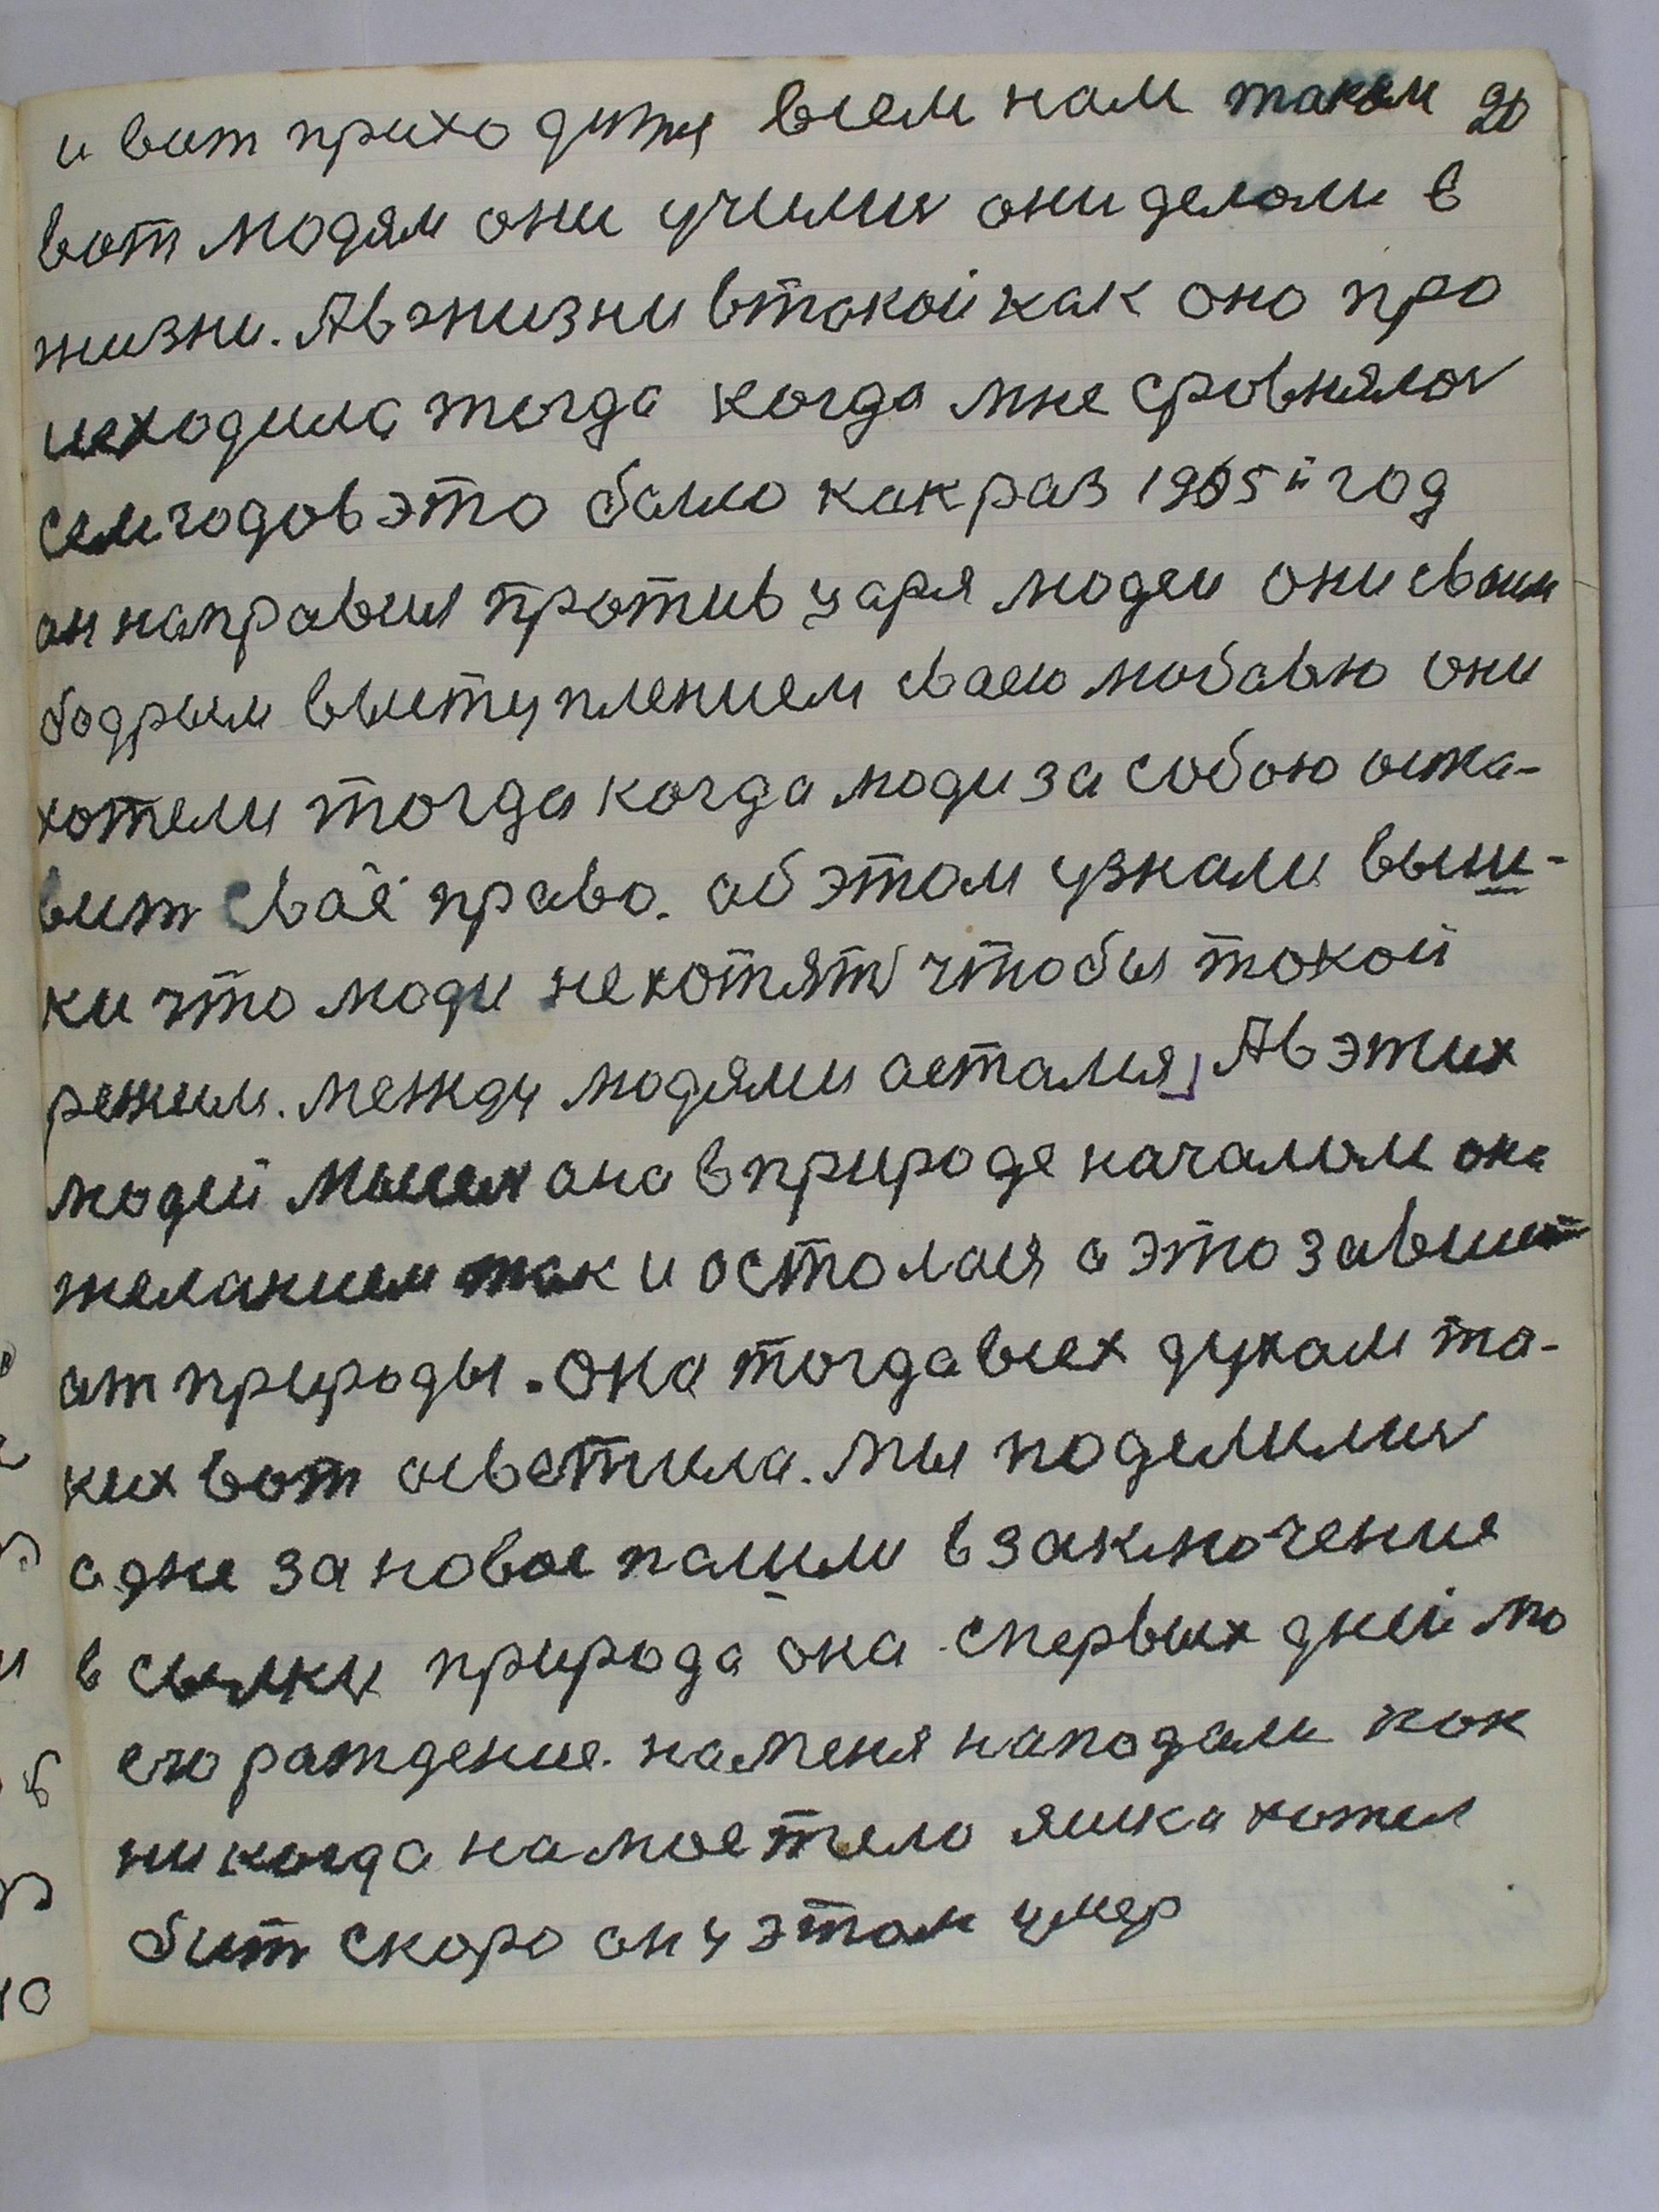 и вот приходится всем нам таким 20
вот людям они училися они делали в
жизни. А в жизни в такой как оно про
исходила тогда когда мне сровнялося
семгодов это было как раз 1905й год
он направил против царя людей они своим
бодрым выступлением сваею любавью они
хотели тогда когда люди за собою оста-
вит сваё право. об этом узнали выш-
ки что люди не хотят чтобы такой
режим. между людями астался, А в этих
людей мысля она в природе началом она
желанием так и осталася а это завист
ат природы. Она тогда всех духам та-
ких вот асветила. мы поделилися
адне за новое палили в заключения
в сылки природа она с первых дней мо
его раждение. на меня нападали как
никогда на мое тело яшка хотел
бит скоро он у этом умер